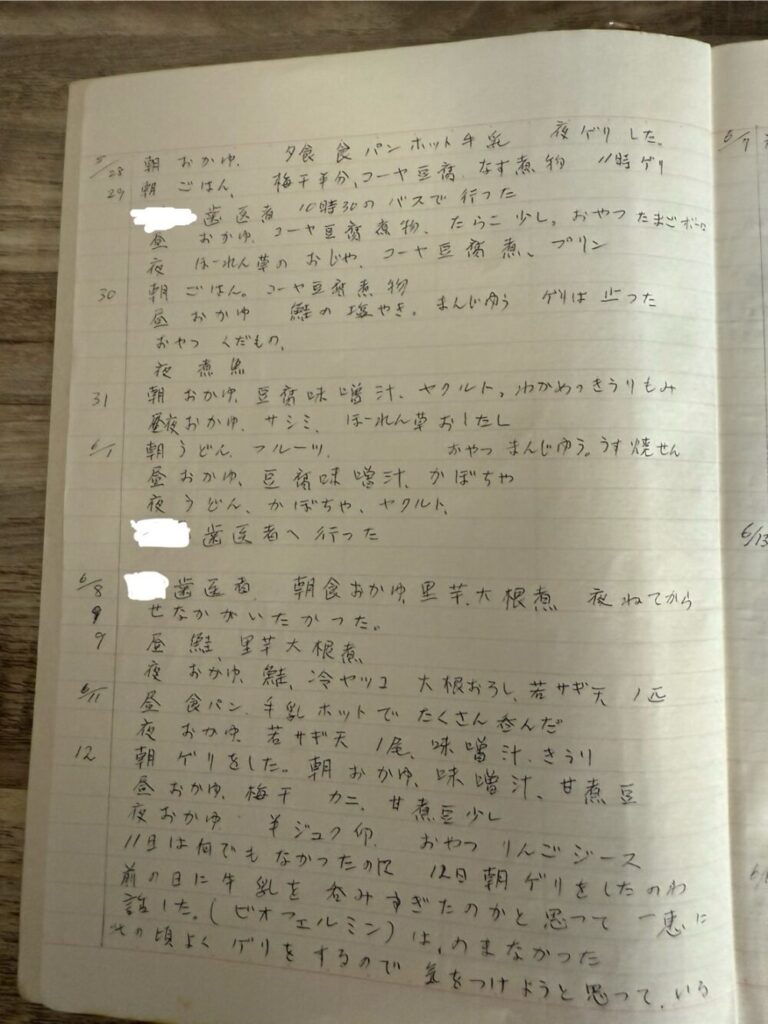 5/28 朝 おかゆ、 夕食 食パン ホット牛乳 夜ゲリした。
29 朝 ごはん、 梅干半分、コーヤ豆腐、なす煮物 11時ゲリ
歯医者 10時30のバスで行った
昼 おかゆ、コーヤ豆腐煮物、たらこ少し。おやつ たまごボーロ
夜 ほーれん草のおじや、コーヤ豆腐煮、プリン
30 朝 ごはん。コーヤ豆腐煮物
昼 おかゆ 鮭の塩やき。まんじゆう ゲリは止つた
おやつ くだもの、
夜 煮魚
31 朝 おかゆ、豆腐味噌汁、ヤクルト。わかめっきうりもみ
昼夜おかゆ、サシミ、ほーれん草おしたし
6/1 朝 うどん、フルーツ、 おやつ まんじゆう。うす焼せん
昼 おかゆ、豆腐味噌汁、かぼちや
夜 うどん、かぼちや、ヤクルト、
歯医者へ行った
6/8 歯医者、 朝食おかゆ、里芋、大根煮 夜ねてから
9 せなかがいたかつた。
9 昼 鮭、里芋大根煮
夜 おかゆ、鮭、冷ヤッコ 大根おろし、若サギ天 1匹
6/11 昼 食パン、牛乳ホットでたくさん呑んだ
夜 おかゆ、若サギ天 1尾、味噌汁、きうり
12 朝 ゲリをした。朝 おかゆ、味噌汁、甘煮豆
昼 おかゆ、梅干 カニ、甘煮豆少し
夜 おかゆ 半ジュク卵、 おやつ りんごジース
11日は何でもなかつたのに 12日朝ゲリをしたのわ
前の日に牛乳を呑みすぎたのかと思つて 一恵に
話した。(ビオフェルミン)は、のまなかつた
その頃よくゲリをするので気をつけようと思つて、いる
6/7
6/13